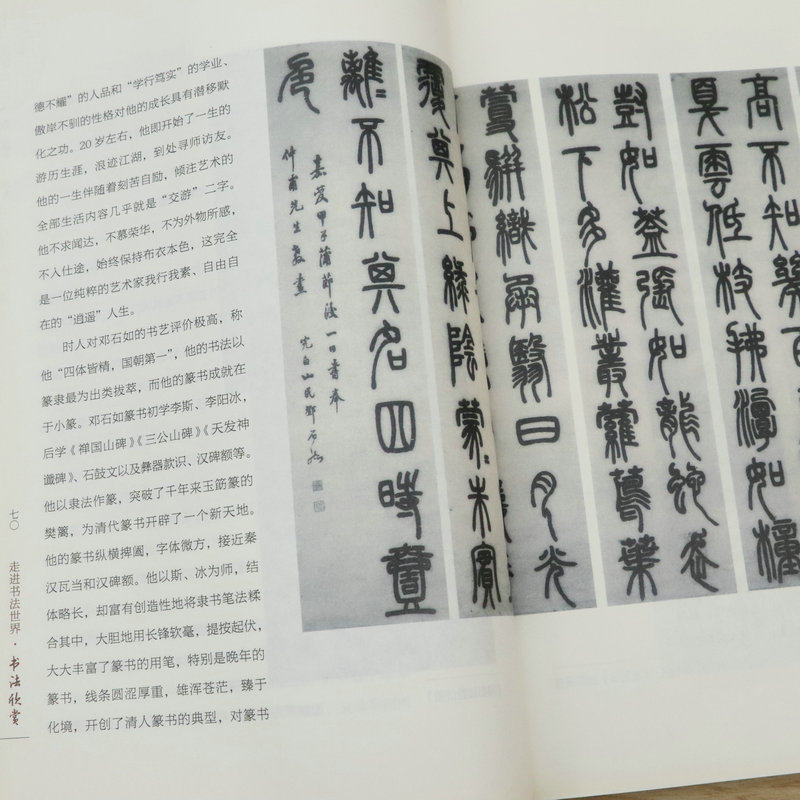 德不耀”的人品和“学行笃实”的学业、
傲岸不驯的性格对他的成长具有潜移默
化之功。20岁左右，他即开始了一生的
游历生涯，浪迹江湖，到处寻师访友。
他的一生伴随着刻苦自励，倾注艺术的
全部生活内容几乎就是“交游”二字。
他不求闻达，不慕荣华，不为外物所感，
不入仕途，始终保持布衣本色，这完全
是一位纯粹的艺术家我行我素、自由自
在的“逍遥”人生。
时人对邓石如的书艺评价极高，称
他“四体皆精，国朝第一”，他的书法以
篆隶最为出类拔萃，而他的篆书成就在
于小篆。邓石如篆书初学李斯、李阳冰，
后学《禅国山碑》《三公山碑》《天发神
谶碑》、石鼓文以及彝器款识、汉碑额等。
他以隶法作篆，突破了千年来玉筯篆的
樊篱，为清代篆书开辟了一个新天地。
他的篆书纵横捭阖，字体微方，接近秦
汉瓦当和汉碑额。他以斯、冰为师，结
体略长，却富有创造性地将隶书笔法糅
合其中，大胆地用长锋软毫，提按起伏，
大大丰富了篆书的用笔，特别是晚年的
篆书，线条圆涩厚重，雄浑苍茫，臻于
化境，开创了清人篆书的典型，对篆书
七〇
走进书法世界·书法欣赏
高不知幾百
戛雲低枝拂潭如幢
尌如蓋張如龍蛇走
松下多灌叢蘿蔦葉
蔓駢織承翳日月光
覆其上綠陰蒙〻朱實
離〻不知其名四時壹
色
嘉慶甲子蒲節後一日書奉
仲甫先生教
完白山民鄧石如